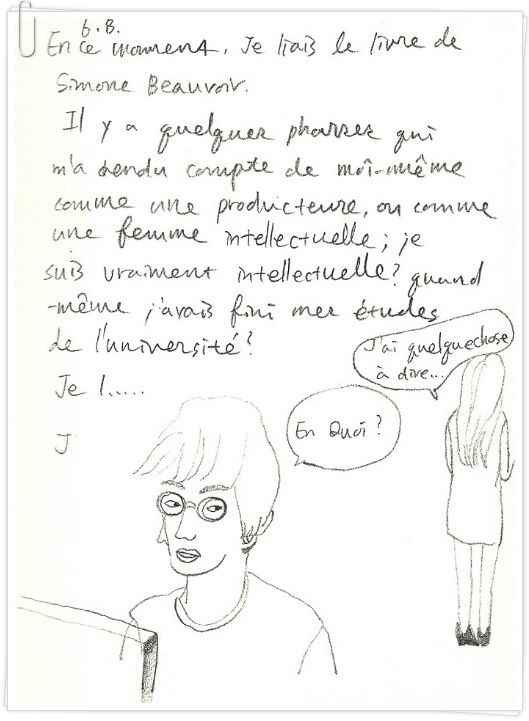 6.8.
En ce moment, Je liais le livre de
Simone Beauvoir.
Il y a quelques pharses qui
m'a rendu compte de moi-même
comme une producteure, ou comme
une femme intellectuelle; je
suis vraiment intellectuelle? quand
-même j'avais fini mes études
de l'université?
Je l.....
J
J'ai quelquechose
à dire...
En Quoi?